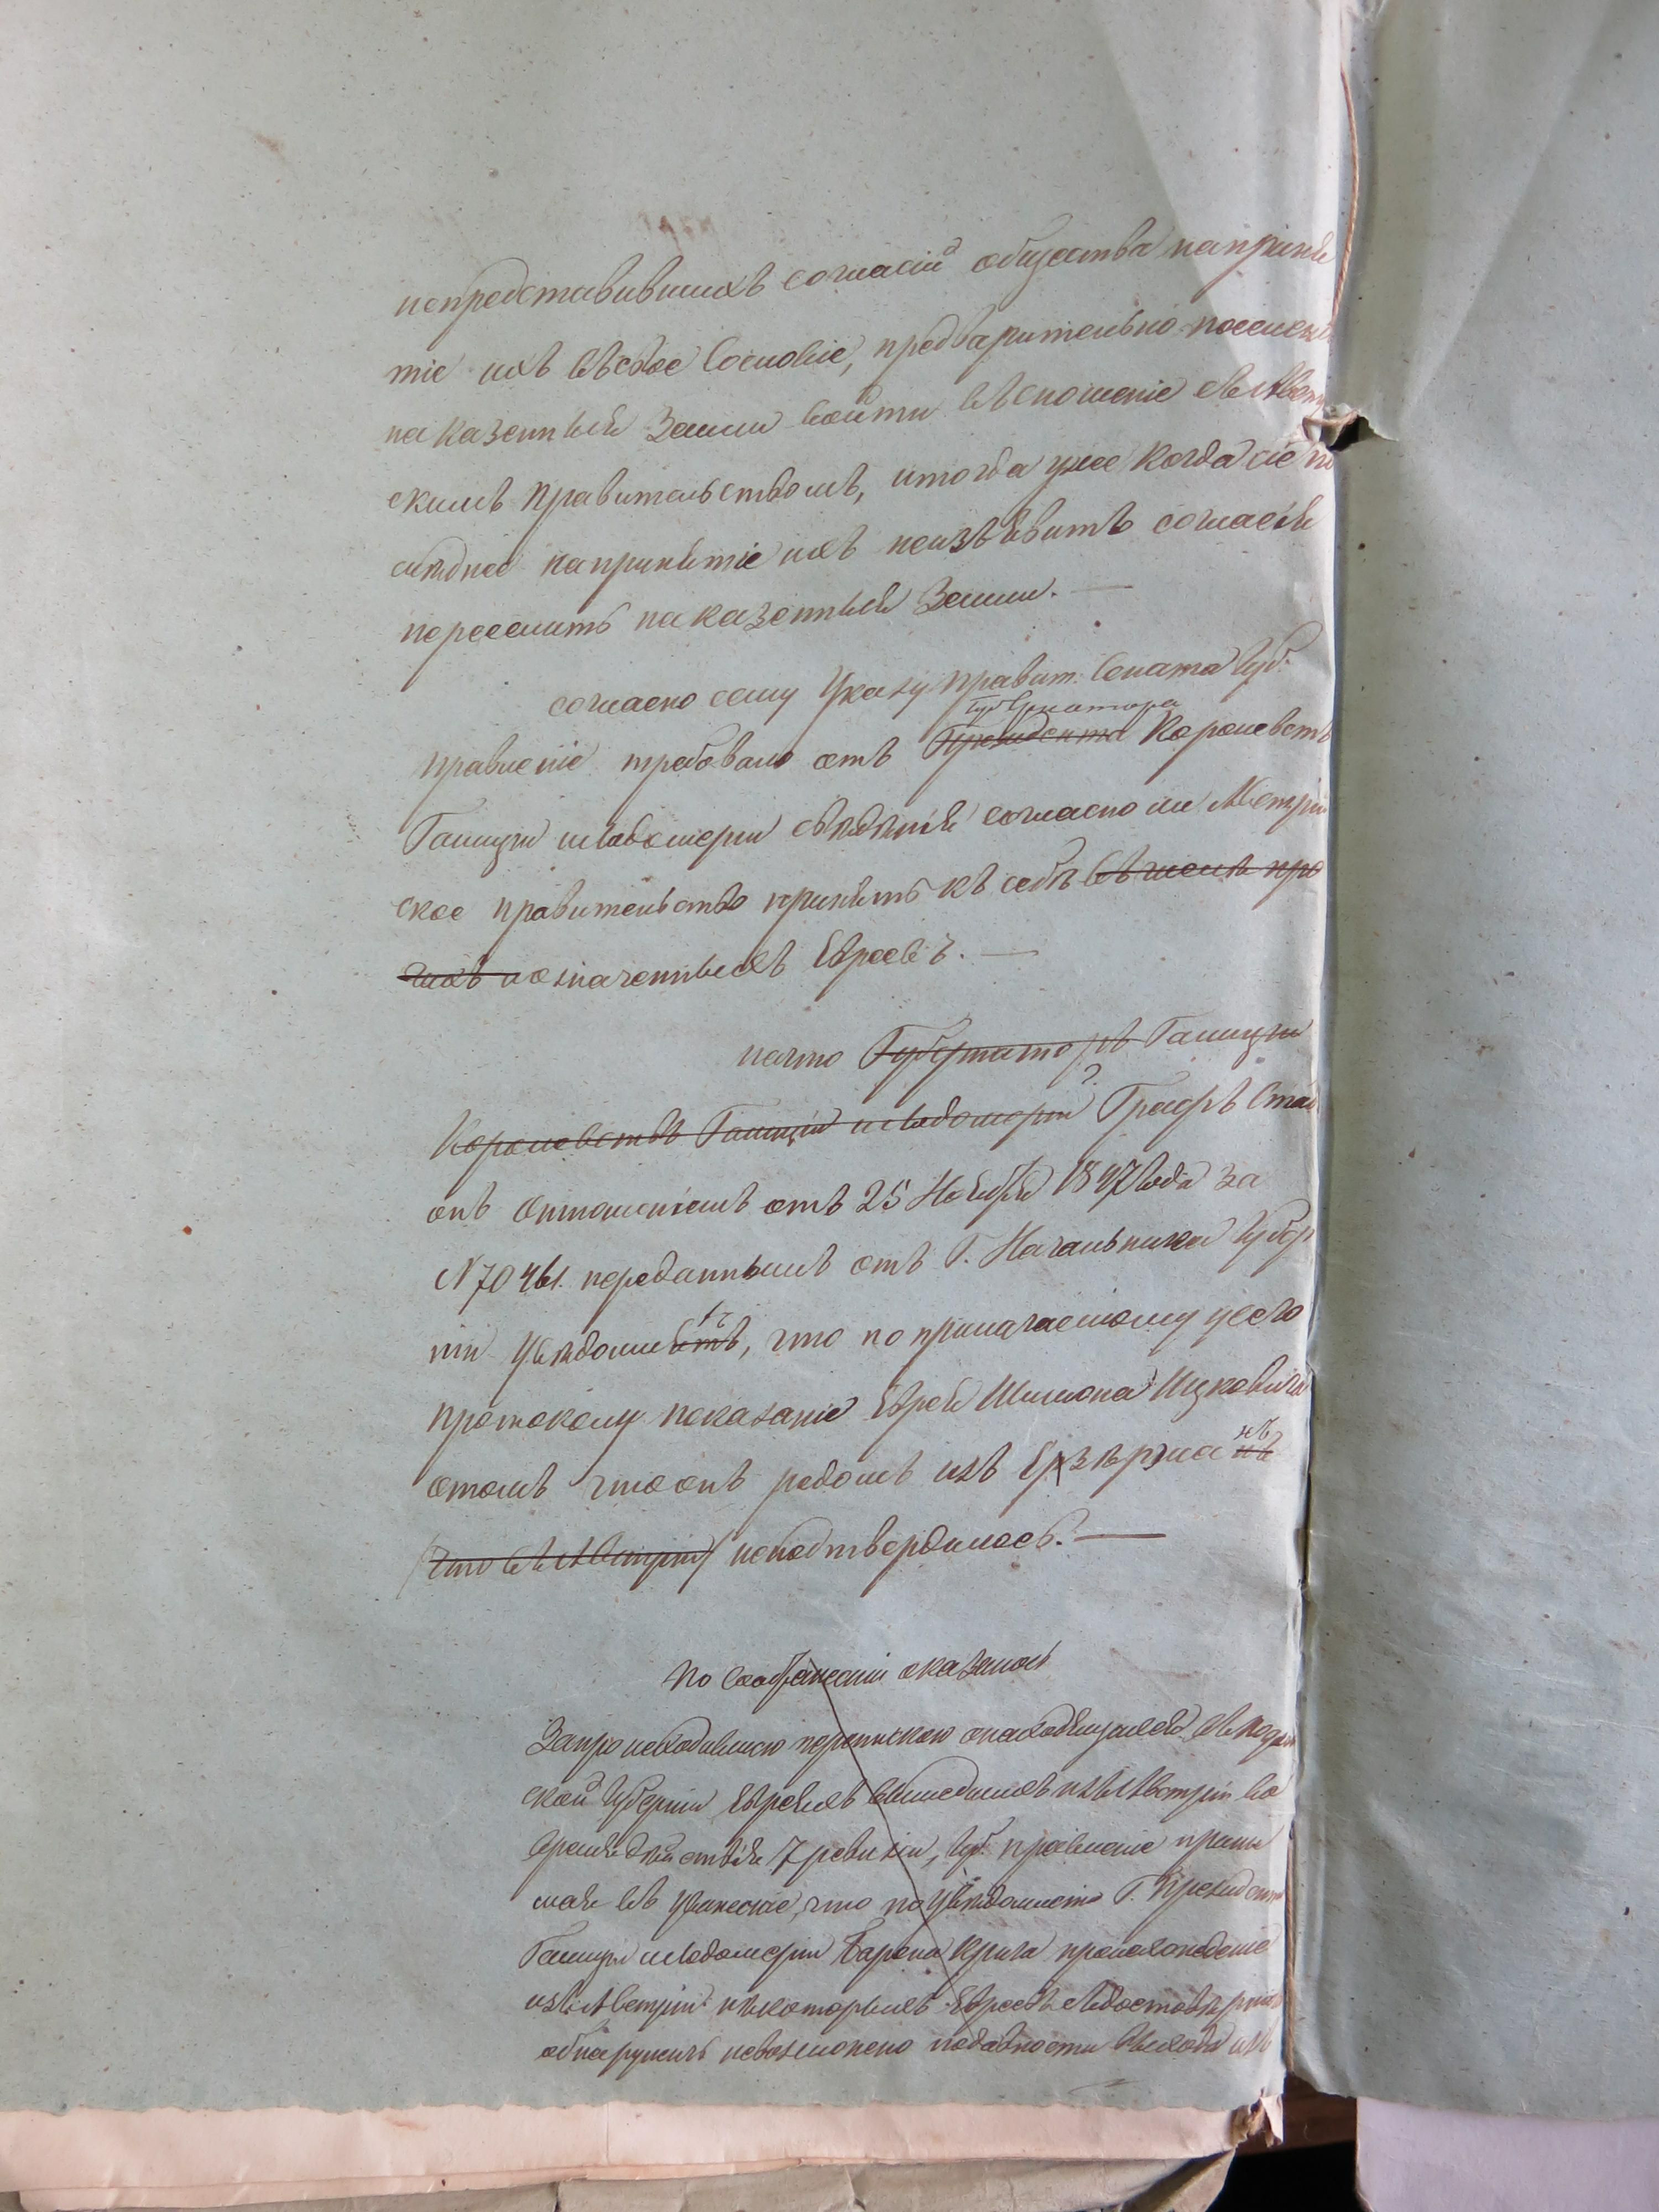 непредставившихъ согласій общества напринѧ
тіе ихъ въсвое Сословіе, предварительно поселенія
на казенныя Земли войти въсношеніе съ Авст
скимъ правительствомъ, итогда уже когда сіе по
слѣднее напринятіе ихъ неизъявитъ согласія
переселить на казенныя Земли. —
согласно сему Указу Правит: Сената Губ:
Губернатора
правленіе требовало отъ Президента Королевствъ
Галиціи иЛодомеріи свѣдѣнія согласно ли Австрій
ское правительство принять къ себѣ въ числѣ про
чихъ иозначенныхъ Евреевъ. —
начто Губернаторъ Галиціи
Королевствъ Галиціи иЛодомеріи Графъ Стад
онъ Отношеніемъ отъ 25 Ноября 1847 года за
N 70461. переданнымъ отъ Г. Начальника Губер
ніи увѣдомляетъ, что по прилагаемому усего
протоколу показаніе Еврея Шимона Ицковича
отомъ что онъ родомъ изъ
что въ Австріи неподтвердилось. —
По Соображеніи оказалось
Запроисходившею перепискою онаходящихся въ
ской Губерніи Евреяхъ вышедшихъ изъ Австріи во
время дѣйствія 7 ревизіи, Губ. правленіе прини
мая въ уваженіе, что по увѣдомленію Г. Президента
Галиціи иЛодомеріи Барона Крига происхожденіе
изъ Австріи нѣкоторыхъ Евреевъ съдостовѣрно
обнаружить невозможно подавности выхода изъ